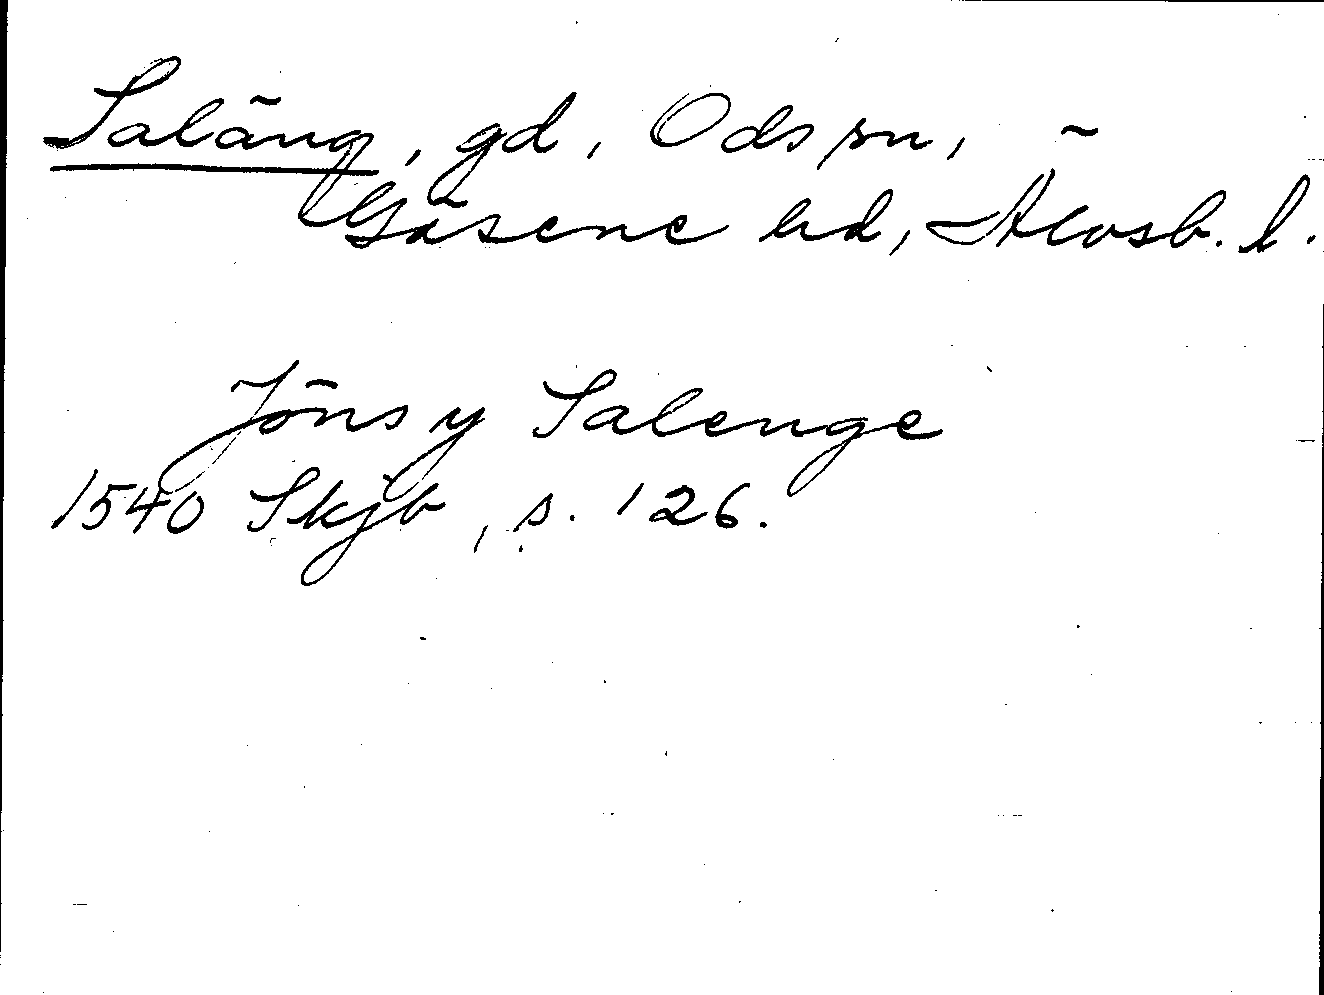 Saläng, gd, Ods sn,
Gäsene hd, Älvsb. l.
Jöns y Salenge
1540 Skjb, s. 126.